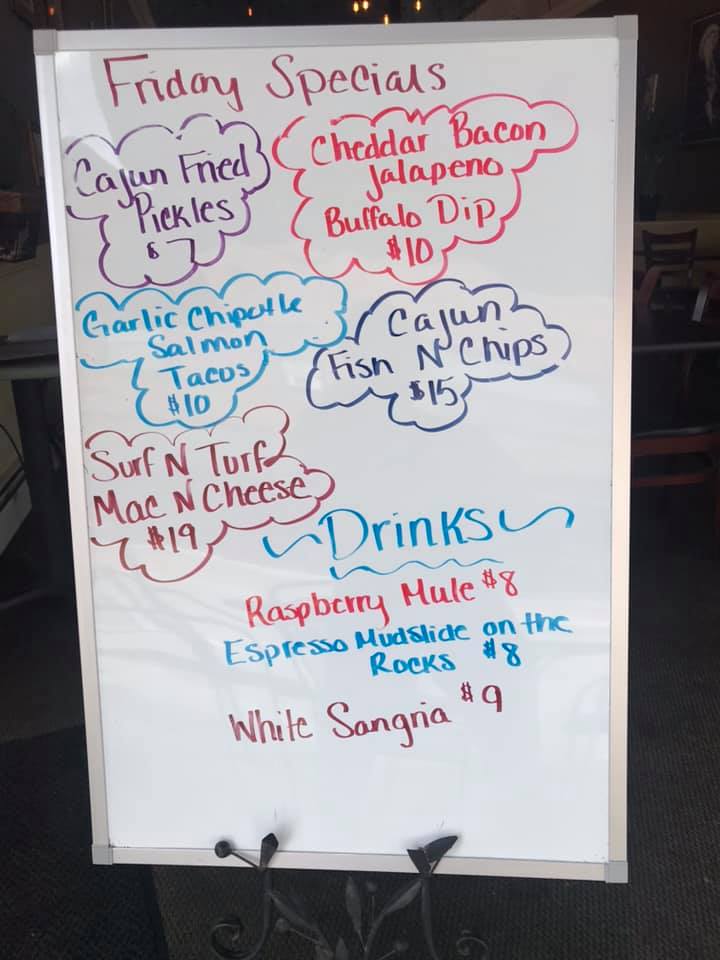 Friday Specials
Cajun Fried
Pickles
$7
Cheddar Bacon
Jalapeno
Buffalo Dip
$10
Garlic Chipotle
Salmon
Tacos
$10
Cajun
Fish N Chips
$15
Surf N Turf
Mac N Cheese
$19
~Drinks~
Raspberry Mule $8
Espresso Mudslide on the
Rocks $8
White Sangria $9